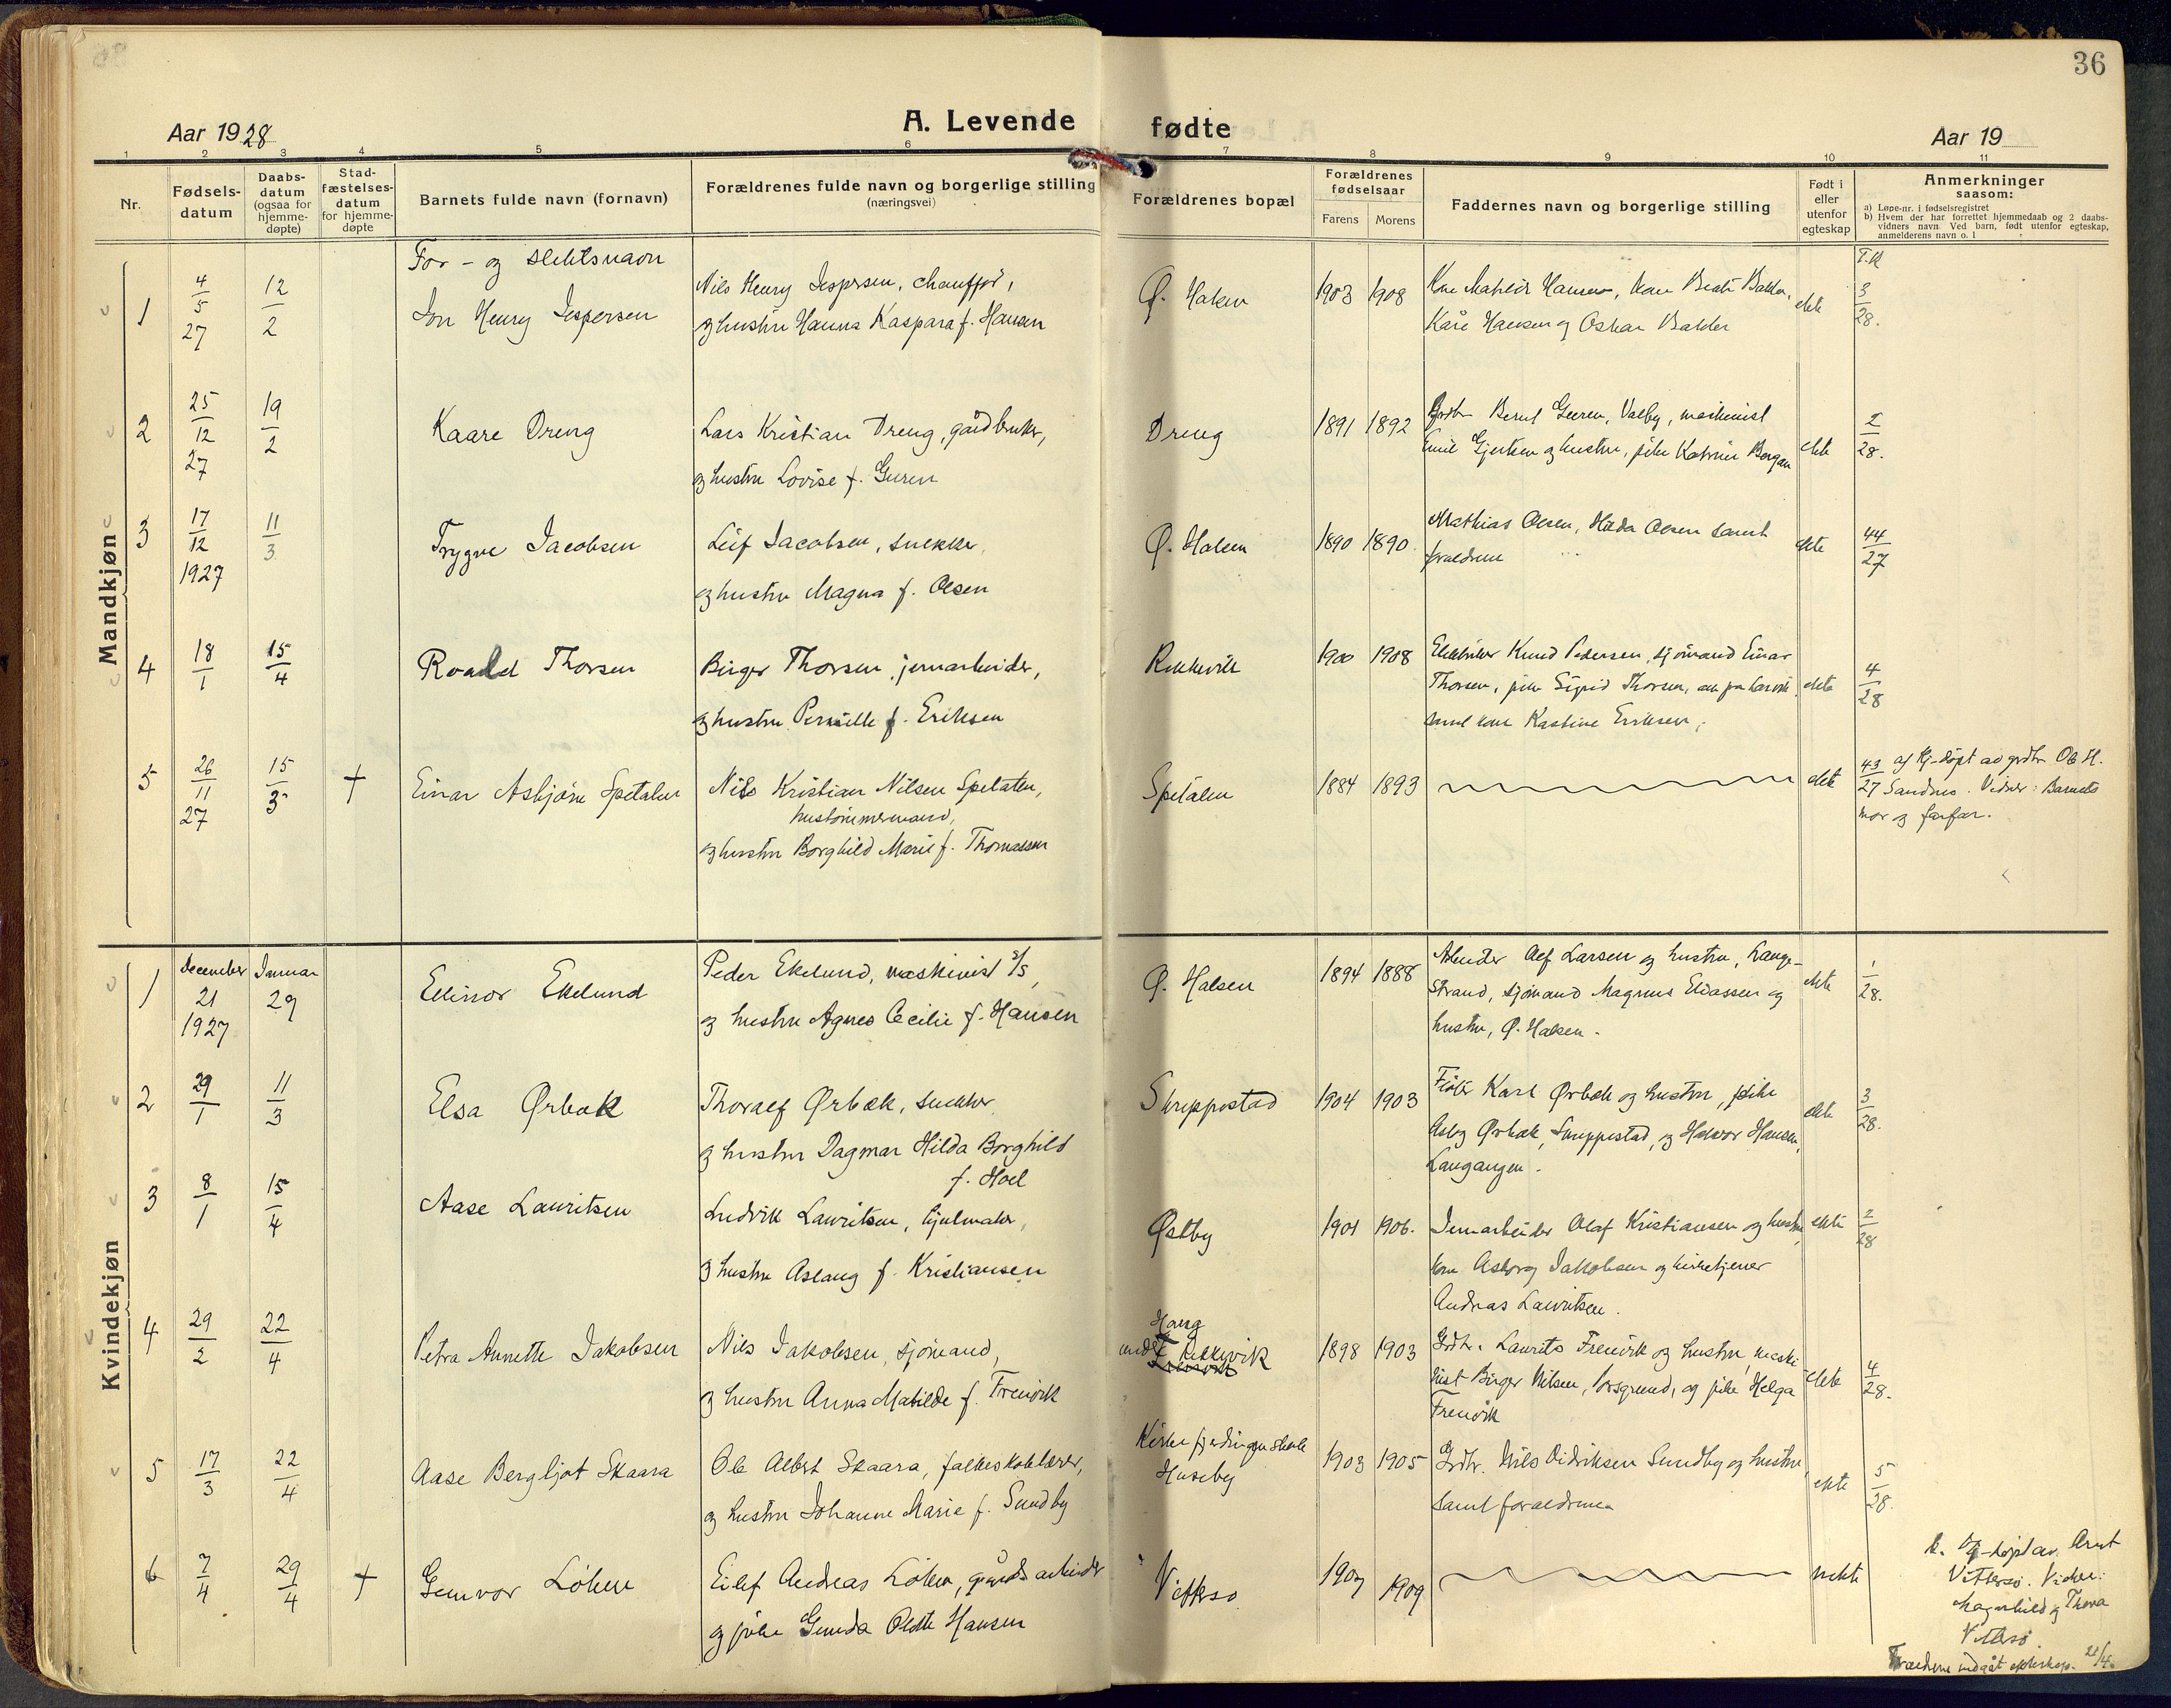 36
Aar 1928
A. Levende fødte
Aar 19
1 2 3 4 5 6 7 8 9 10 11
Nr.
Fødsels-
datum
Daabs-
datum
(ogsaa for
hjemme-
døpte)
Stad-
fæstelses-
datum
for hjemme-
døpte
Barnets fulde navn (fornavn)
Forældrenes fulde navn og borgerlige stilling
(næringsvei)
Forældrenes bopæl
Forældrenes
fødselsaar
Farens Morens
Faddernes navn og borgerlige stilling
Født i
eller
utenfor
egteskap
Anmerkninger
saasom:
a) Løpe-nr. i fødselsregistret
b) Hvem der har forrettet hjemmedaab og 2 daabs-
vidners navn. Ved barn, født utenfor egteskap,
anmelderens navn o. l.
Mandkjøn
For- og slektsnavn
1
4/5 27
12/2
Jon Henry Jespersen
Nils Henry Jespersen, chauffør,
og hustru Hanna Kaspara f. Hansen
Ø. Halsen
1903 1908
Kone Mathilde Hansen, kone Beate Balder,
Kåre Hansen og Oskar Balder
ekte
T.R
3/28.
2
25/12 27
19/2
Kaare Dreng
Lars Kristian Dreng, gårdbruker,
og hustru Lovise f. Guren
Dreng
1891 1892
Bernt Guren, Valby, maskinist
Emil Gjertsen og hustru, pike Katrine Bergan
ekte
2/28.
3
17/12 1927
11/3
Trygve Jacobsen
Leif Jacobsen, snekker,
og hustru Magna f. Olsen
Ø. Halsen
1890 1890
Mathias Olsen, Hilda Olsen samt
forældrene
ekte
44/27
4
18/1
15/4
Roald Thorsen
Birger Thorsen, jernarbeider,
og hustru Pernille f. Eriksen
Rekkevik
1900 1908
Elektriker Knud Pedersen, sjømand Einar
Thorsen, pike Sigrid Thorsen, alle fra Larvik,
samt kone Kastine Eriksen.
ekte
4/28
5
26/11 27
15/3
†
Einar Asbjørn Spetalen
Nils Kristian Nilsen Spetalen,
hustømmermand,
og hustru Borghild Marie f. Thomassen
Spetalen
1884 1893
ekte
43/27 Hj-døpt av grdbr. Ole H.
Sandnes. Vidner: Barnets
mor og farfar.
Kvindekjøn
1
december 21 1927
Januar 29
Ellinor Ekelund
Peder Ekelund, maskinist S/S,
og hustru Agnes Cecilie f. Hansen
Ø. Halsen
1894 1888
Arbeider Alf Larsen og hustru, Lange-
strand, sjømand Magnus Eliassen og
hustru, Ø. Halsen.
ekte
1/28.
2
29/1
11/3
Elsa Ørbæk
Thoralf Ørbæk, snekker
og hustru Dagmar Hilda Borghild
f. Hoel
Skreppestad
1904 1903
Karl Ørbæk og hustru, pike
Asby Ørbæk, Skreppestad, og Halvor Hansen,
Langangen.
ekte
3/28.
3
8/1
15/4
Aase Lauritsen
Ludvik Lauritsen, hjulmaker,
og hustru Aslaug f. Kristiansen
Østby
1901 1906.
Jernarbeider Olaf Kristiansen og hustru,
kone Asborg Jakobsen og kirketjener
Andreas Lauritsen.
ekte
2/28
4
29/2
22/4
Petra Annette Jakobsen
Nils Jakobsen, sjømand,
og hustru Anna Matilde f. Frenvik
Haug
under Rekkevik
1898 1903
Grdbr. Laurits Frenvik og hustru, maski-
nist Birger Nilsen, Porsgrund, og pike Helga
Frenvik
ekte
4/28.
5
17/3
22/4
Aase Bergljot Skaara
Ole Albert Skaara, folkeskolelærer,
og hustru Johanne Marie f. Sundby
Kirkefjerdingen skole
Huseby
1903 1905
Grdbr. Nils Didriksen Sundby og hustru,
samt forældrene
ekte
5/28.
6
7/4
29/4
†
Gunvor Løken
Eilef Andreas Løken, gårdsarbeider
og pike Gunda Olette Hansen
Vittersø
1907 1909
uekte
b. Hj-døpt av Arnt
Vittersø. Vidner:
Magnhild og Thora
Vittersø.
Forældrene indgåt ekteskap. 21/4.